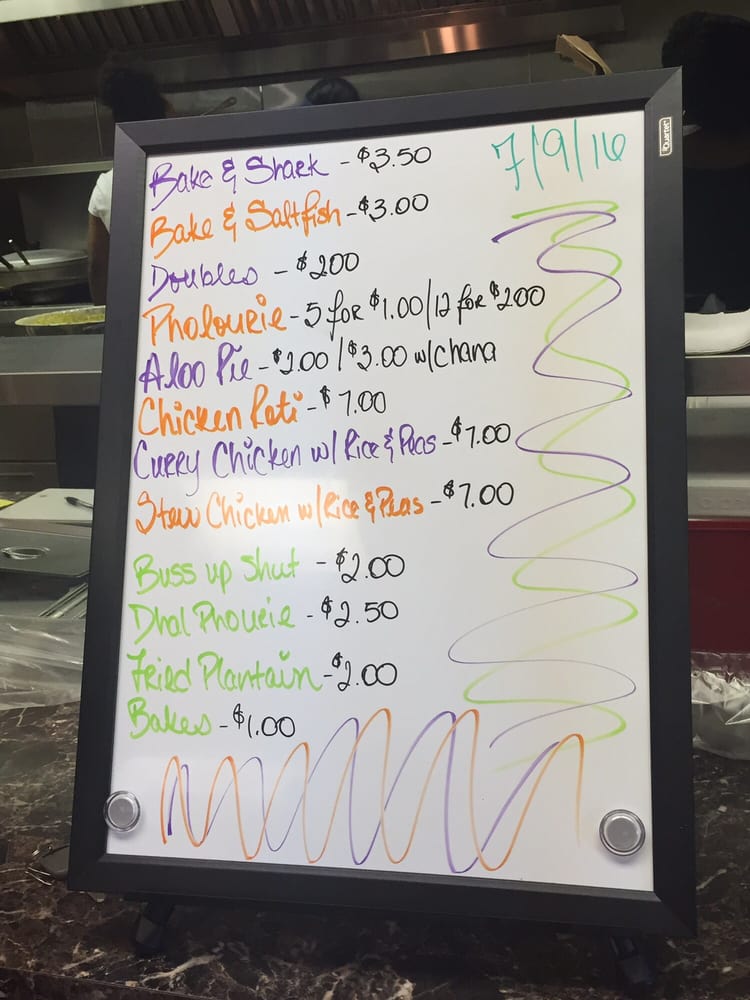 7/9/16
Quartet
Bake & Shark - $3.50
Bake & Saltfish - $3.00
Doubles - $200
Pholourie - 5 for $1.00/12 for $200
Aloo Pie - $2.00 / $3.00 w/chana
Chicken Roti - $7.00
Curry Chicken w/ Rice & Peas - $7.00
Stew Chicken w/ Rice & Peas - $7.00
Buss up Shut - $2.00
Dhal Phourie - $2.50
Fried Plantain - $2.00
Bakes - $1.00